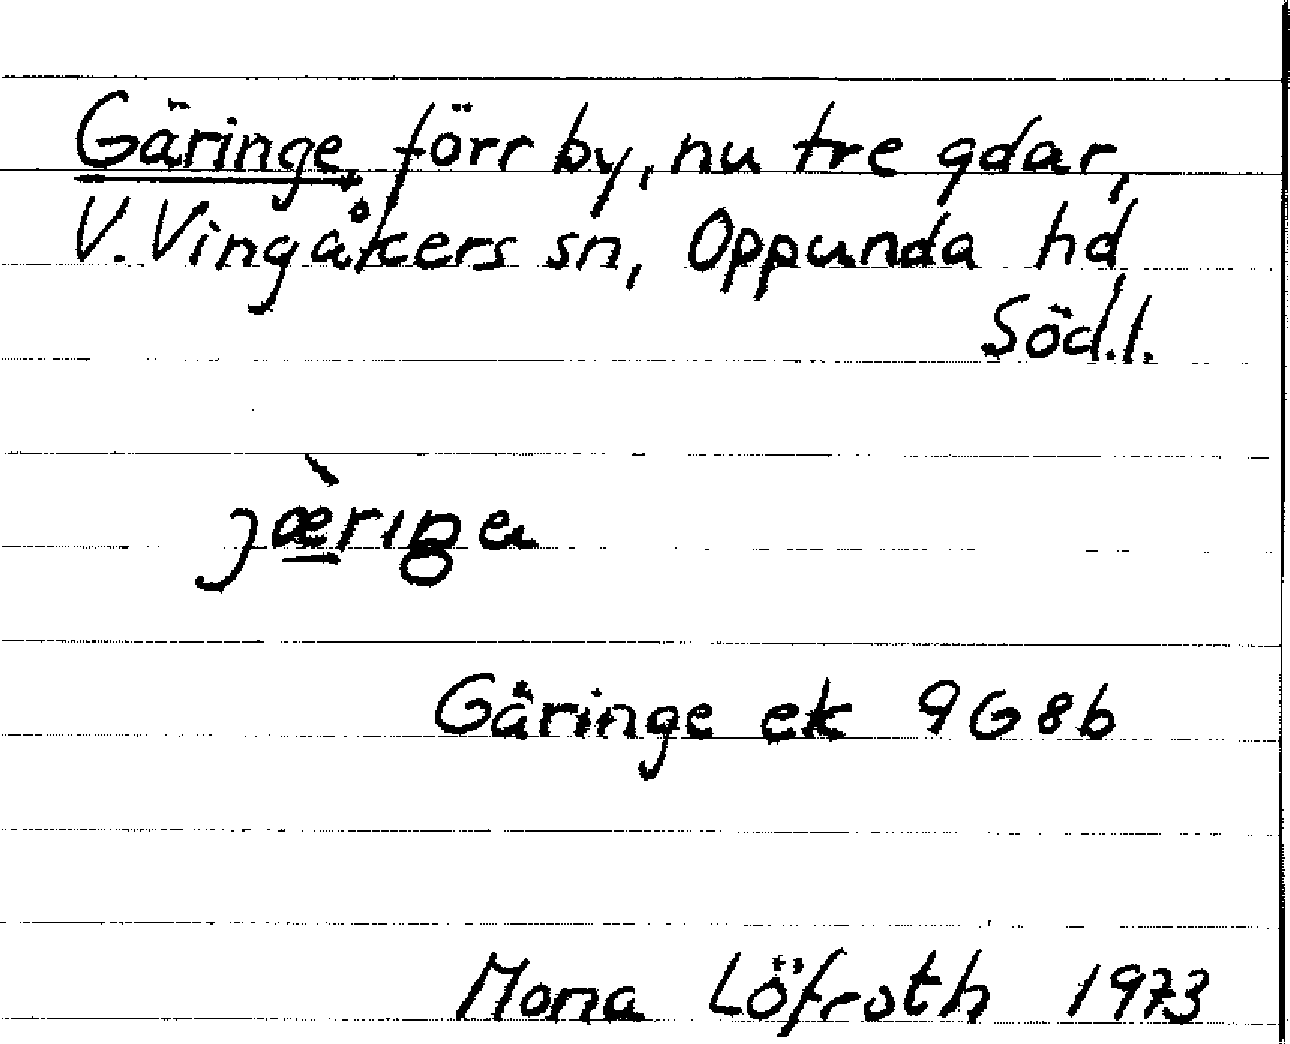 Gäringe, förr by, nu tre gdar,
V. Vingåkers sn, Oppunda hd,
Söd.l.
Gäringe ek 9G8b
Mona Löfroth 1973